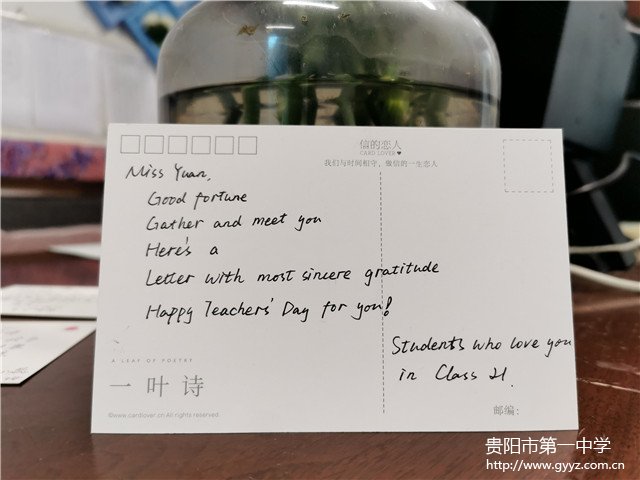 信的恋人
CARD LOVER
我们与时间相守，做信的一生恋人
Miss Yuan,
Good fortune
Gather and meet you
Here's a
Letter with most sincere gratitude
Happy Teachers' Day for you!
Students who love you
in Class 21.
A LEAF OF POETRY
一叶诗
©www.cardlover.cn All rights reserved.
邮编:
贵阳市第一中学
http://www.gyyz.com.cn